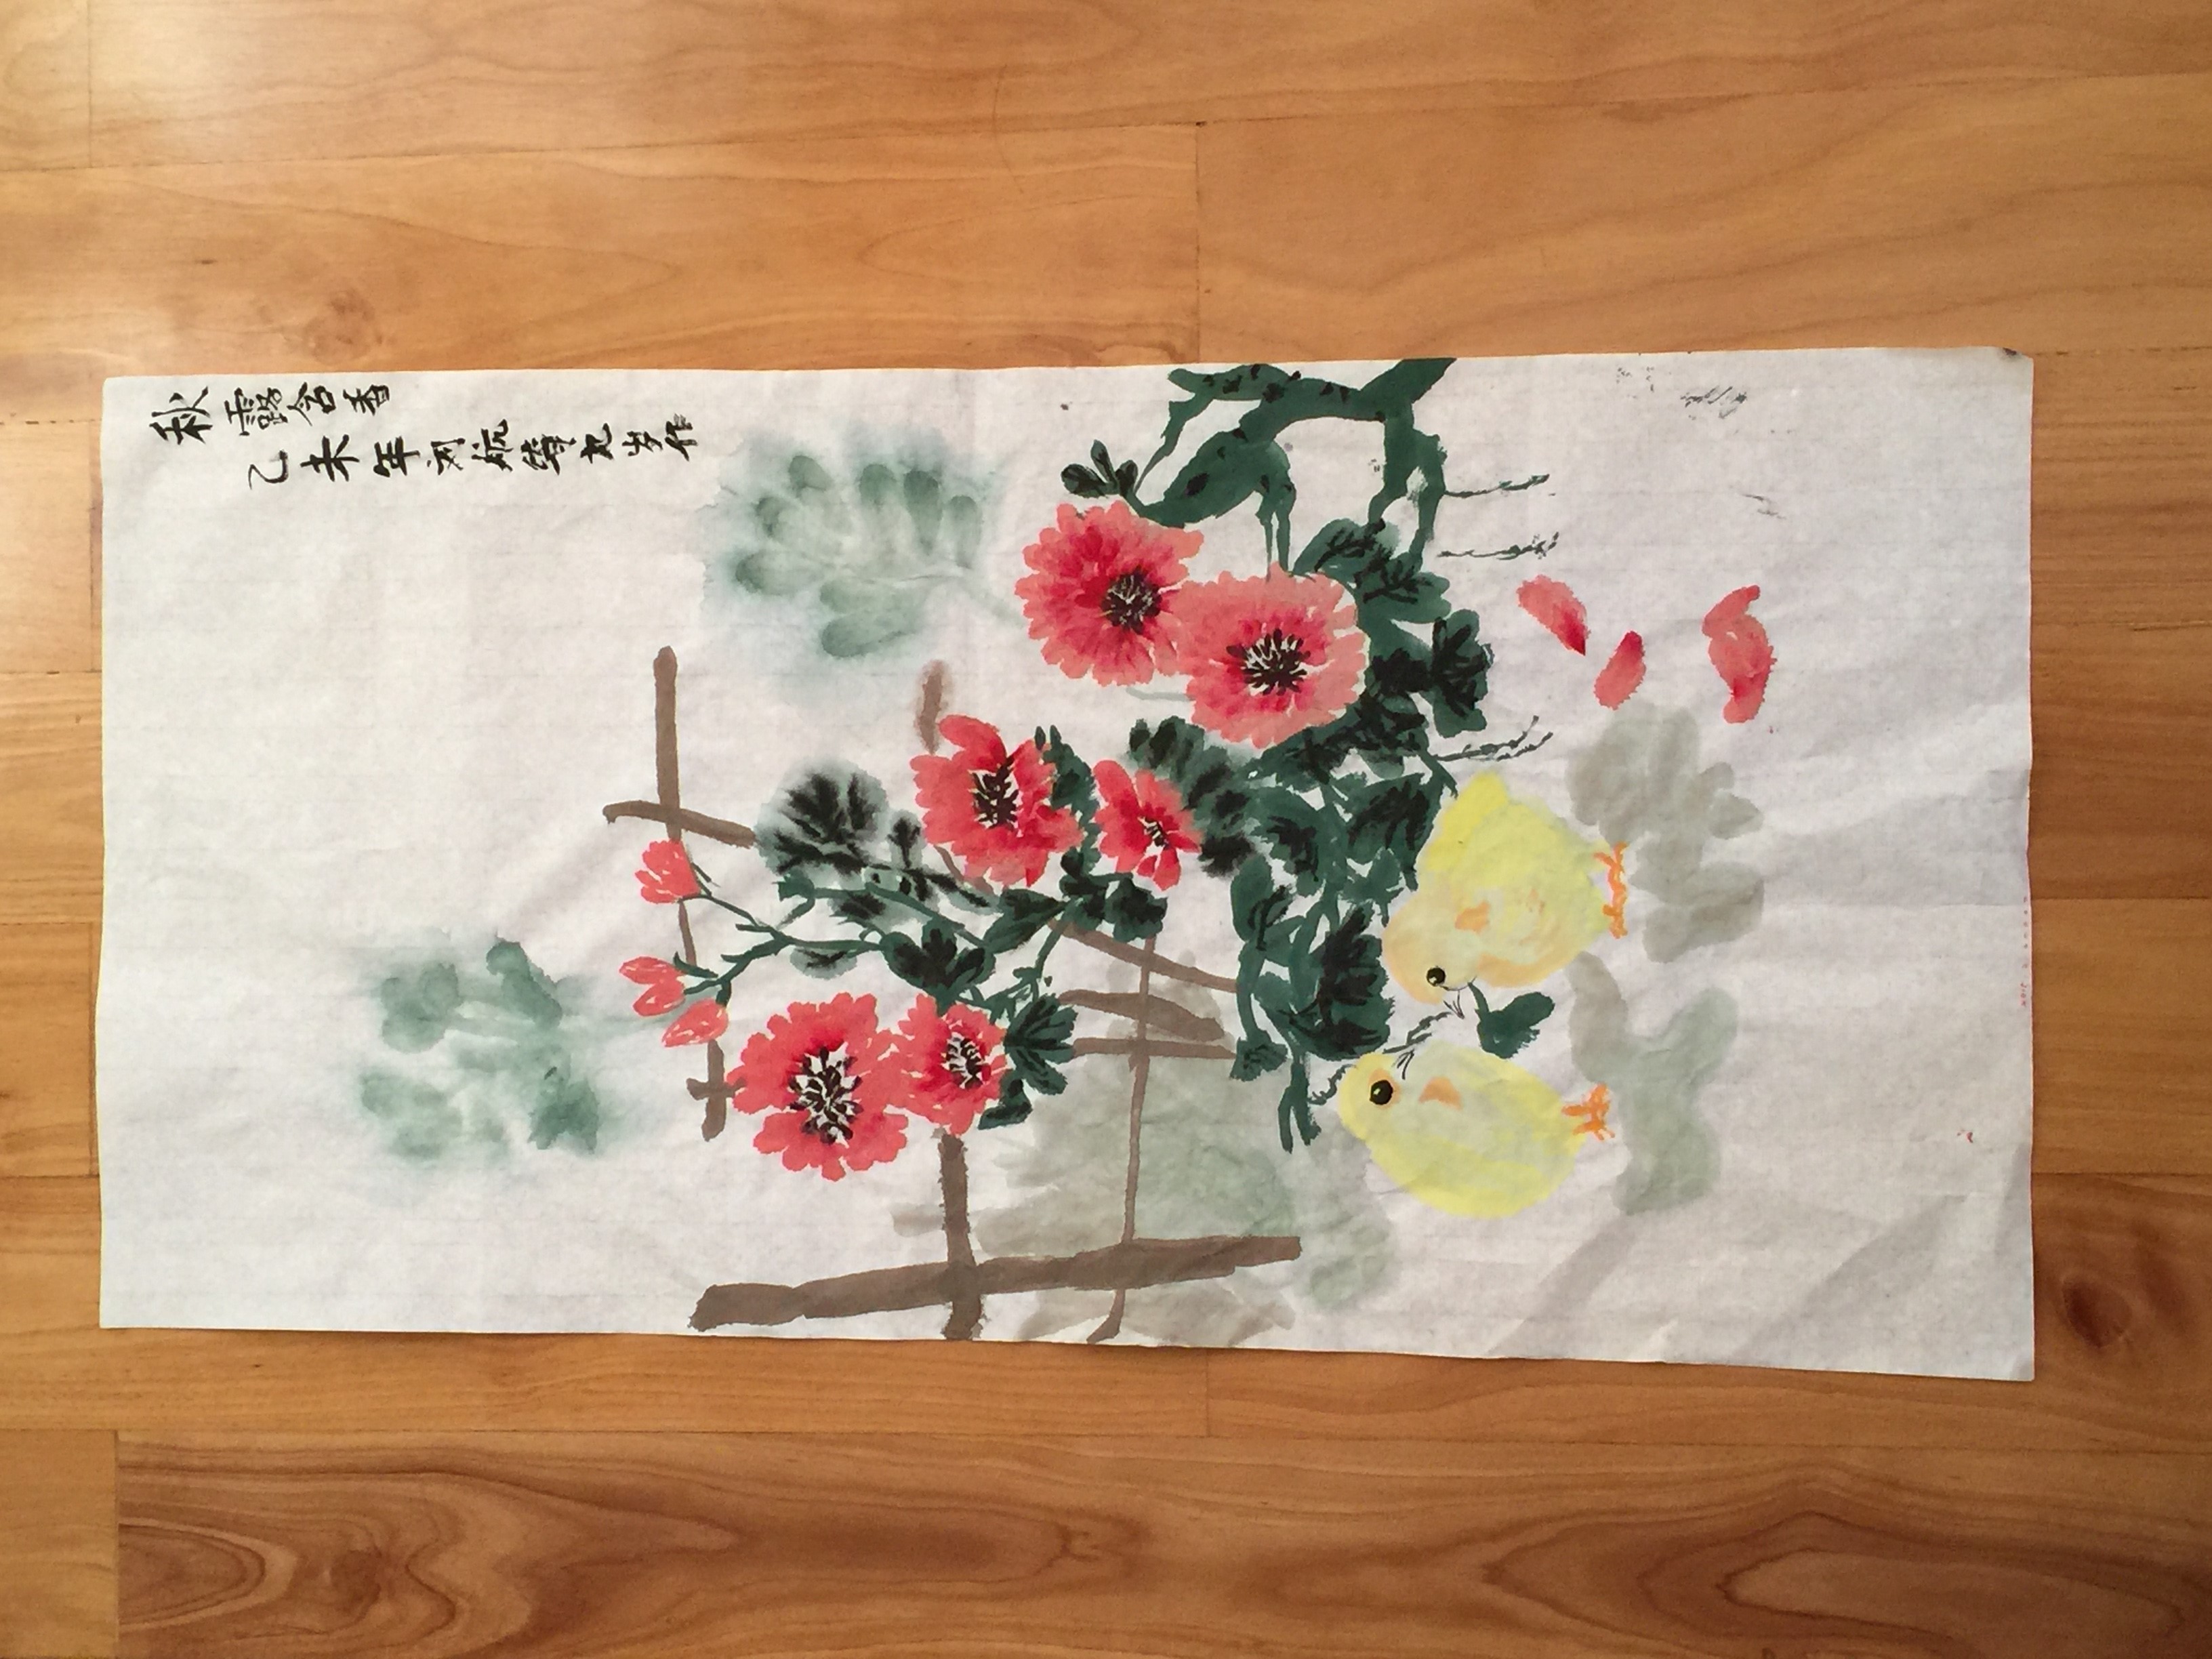 秋露含香
乙未年刘航筹九岁作